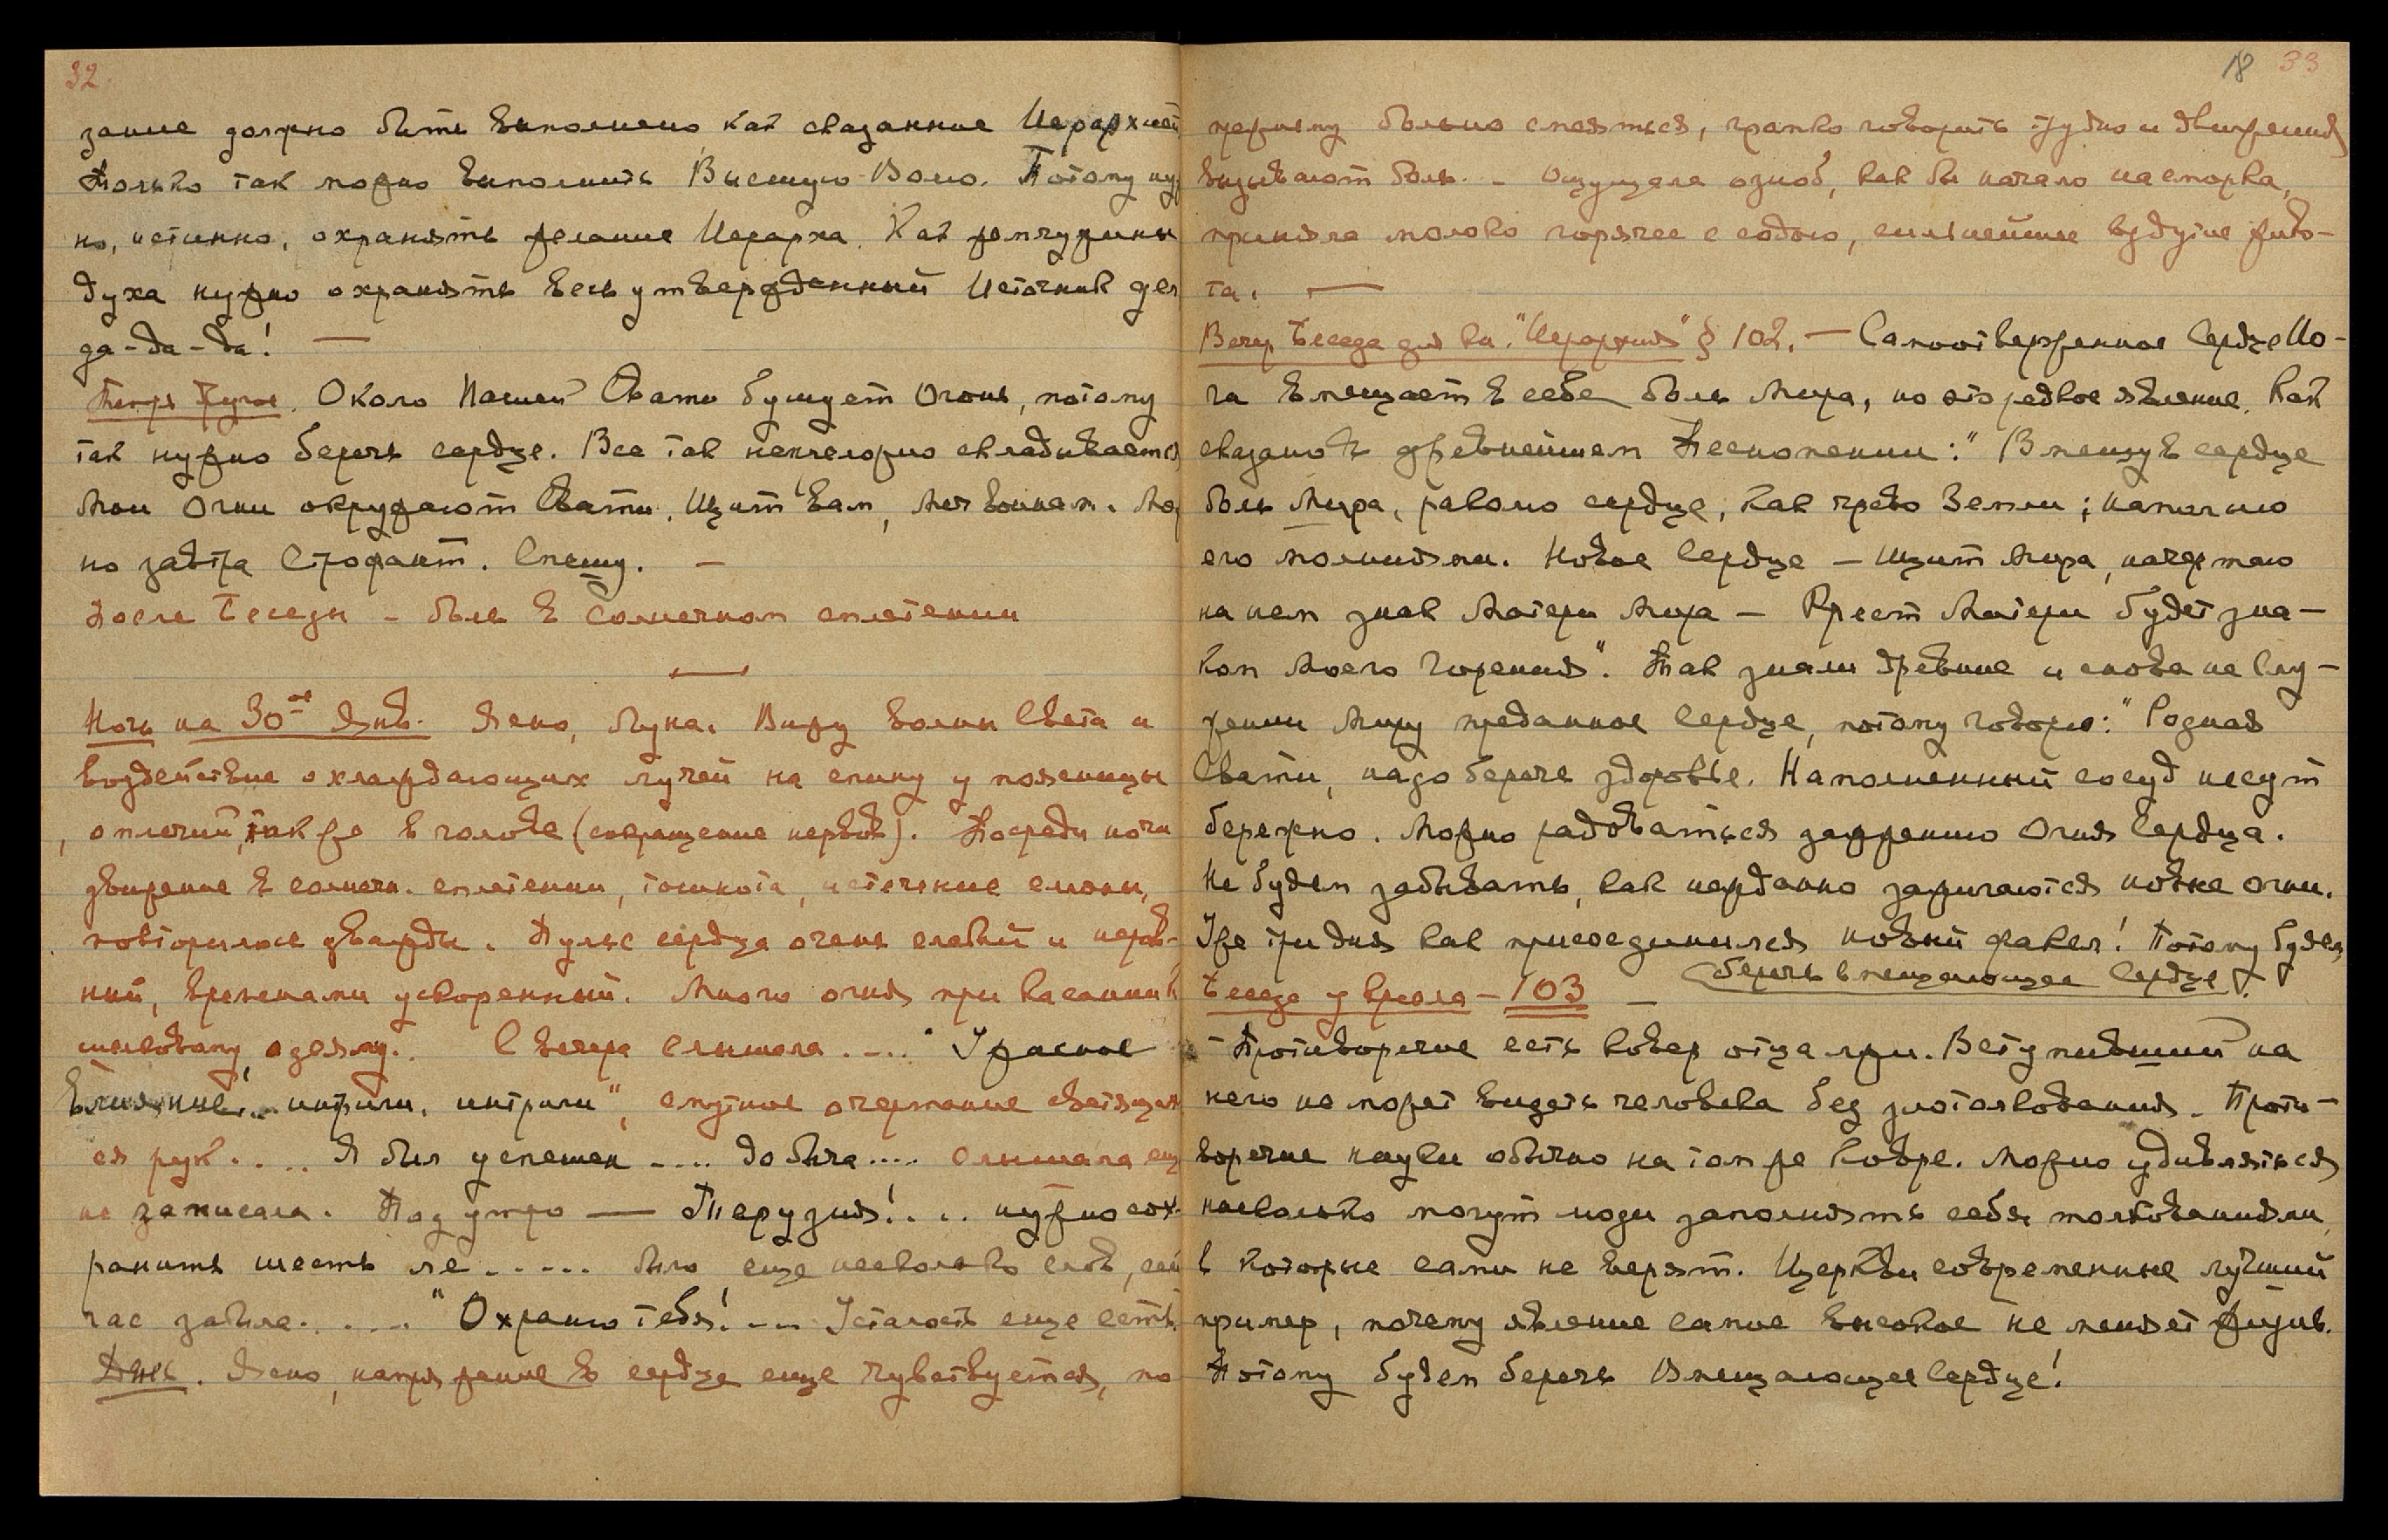 32.
зание должно быть выполнено как сказанное Иерархией
Только так можно выполнить Высшую Волю. Потому нуж
но, истинно, охранять желание Иерарха. Как жемчужины
духа нужно охранять весь утвержденный Источник дел
да-да-да! —
Около Нашей Свати бушует Огонь, потому
так нужно беречь сердце. Все так неплохо складывается
Мои Огни окружают Свати. Щит вам, меч воинам. Мож
но завтра Спешу. —
После Беседы – боль в солнечном сплетении
—
Ночь на 30ое Янв. Ясно, Луна. Вижу волны Света и
воздействие охлаждающих лучей на спину у поясницы
, оплечий, так же в голове (сокращение нервов). Посреди ночи
движение в солнечн. сплетении, тошнота, истечение слюны,
повторилось дважды. Пульс сердца очень слабый и нерв-
ный, временами ускоренный. Много огня при касании к
шелковому одеялу.. С вечера слышала ..... Ужасное
влияние.... интриги, интриги", смутное очертание светящих
ся рук.... Я был успешен .... добыча .... слышала ещ
не записала. Под утро — Терузия!.... нужно сох-
ранить шесть ле ..... было еще несколько слов, сей
час забыла. .... "Охраню тебя! ... Усталость еще есть.
День. Ясно, напряжение в сердце еще чувствуется, по
18 33
прежнему больно смеяться, громко говорить трудно и движения
вызывают боль. – Ощущала озноб, как бы начало насморка,
приняла молоко горячее с содою, сильнейшее вздутие живо-
та. —
Вечер. Беседа для кн. "Иерархия" § 102. — Самоотверженное Сердце Ио-
га вмещает в себе боль Мира, но это редкое явление. Как
сказано в древнейшем Песнопении: "Вмещу в сердце
боль Мира, раскалю сердце, как чрево Земли; напитаю
его молниями. Новое Сердце – щит Мира, начертаю
на нем знак Матери Мира – Крест Матери будет зна-
ком Моего Горения". Так знали древние и снова на Слу-
жении Миру преданное Сердце, потому говорю: "Родная
Свати, надо беречь здоровье. Наполненный сосуд несут
бережно. Можно радоваться рождению Огня Сердца.
Не будем забывать, как нежданно зажигаются новые огни.
Уже три дня как присоединился новый факел! Потому будем
беречь вмещающее Сердце!
Беседа у кресла – 103 —
– Противоречие есть ковер отца лжи. Вступивший на
него не может видеть человека без злотолкования. Проти-
воречие науки обычно на том же ковре. Можно удивляться
насколько могут люди заполнять себя толкованиями,
в которые сами не верят. Церкви современные лучший
пример, почему явление самое высокое не меняет жизнь.
Потому будем беречь Вмещающее Сердце!